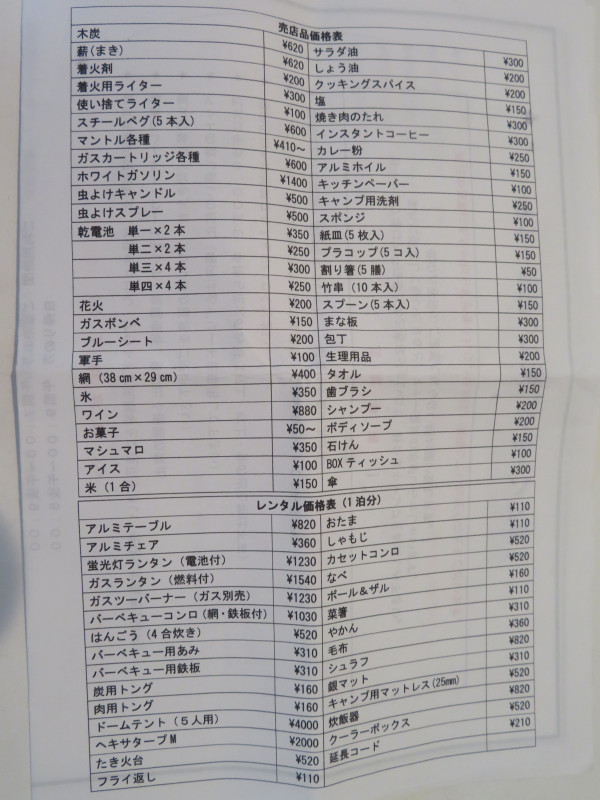 売店品価格表
木炭 ¥620 サラダ油 ¥300
薪(まき) ¥620 しょう油 ¥200
着火剤 ¥200 クッキングスパイス ¥200
着火用ライター ¥300 塩 ¥150
使い捨てライター ¥100 焼き肉のたれ ¥300
スチールペグ(5本入) ¥600 インスタントコーヒー ¥300
マントル各種 ¥410～ カレー粉 ¥250
ガスカートリッジ各種 ¥600 アルミホイル ¥150
ホワイトガソリン ¥1400 キッチンペーパー ¥100
虫よけキャンドル ¥500 キャンプ用洗剤 ¥250
虫よけスプレー ¥500 スポンジ ¥100
乾電池 単一×2本 ¥350 紙皿(5枚入) ¥150
単二×2本 ¥250 プラコップ(5コ入) ¥150
単三×4本 ¥300 割り箸(5膳) ¥50
単四×4本 ¥250 竹串(10本入) ¥100
花火 ¥200 スプーン(5本入) ¥150
ガスボンベ ¥150 まな板 ¥300
ブルーシート ¥200 包丁 ¥300
軍手 ¥100 生理用品 ¥200
網(38cm×29cm) ¥400 タオル ¥150
氷 ¥350 歯ブラシ ¥150
ワイン ¥880 シャンプー ¥200
お菓子 ¥50～ ボディソープ ¥200
マシュマロ ¥350 石けん ¥150
アイス ¥100 BOXティッシュ ¥100
米(1合) ¥150 傘 ¥300
レンタル価格表(1泊分)
アルミテーブル ¥820 おたま ¥110
アルミチェア ¥360 しゃもじ ¥110
蛍光灯ランタン(電池付) ¥1230 カセットコンロ ¥520
ガスランタン(燃料付) ¥1540 なべ ¥520
ガスツーバーナー(ガス別売) ¥1230 ボール＆ザル ¥160
バーベキューコンロ(網・鉄板付) ¥1030 菜箸 ¥110
はんごう(4合炊き) ¥520 やかん ¥310
バーベキュー用あみ ¥310 毛布 ¥360
バーベキュー用鉄板 ¥310 シュラフ ¥820
炭用トング ¥160 銀マット ¥310
肉用トング ¥160 キャンプ用マットレス(25mm) ¥520
ドームテント(5人用) ¥4000 炊飯器 ¥820
ヘキサタープM ¥2000 クーラーボックス ¥520
たき火台 ¥520 延長コード ¥210
フライ返し ¥110